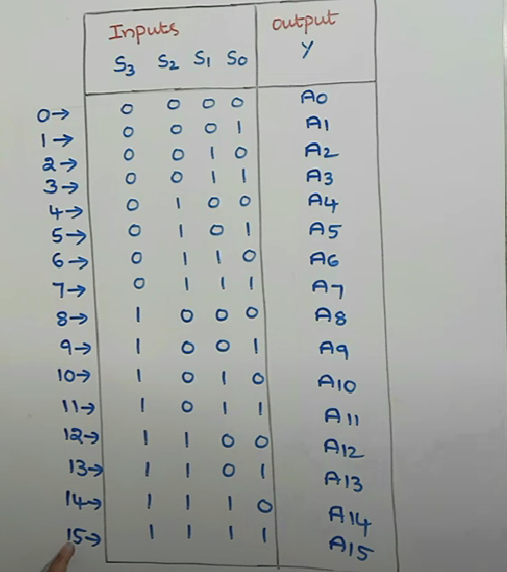 Inputs output
S3 S2 S1 S0 Y
0→ 0 0 0 0 A0
1→ 0 0 0 1 A1
2→ 0 0 1 0 A2
3→ 0 0 1 1 A3
4→ 0 1 0 0 A4
5→ 0 1 0 1 A5
6→ 0 1 1 0 A6
7→ 0 1 1 1 A7
8→ 1 0 0 0 A8
9→ 1 0 0 1 A9
10→ 1 0 1 0 A10
11→ 1 0 1 1 A11
12→ 1 1 0 0 A12
13→ 1 1 0 1 A13
14→ 1 1 1 0 A14
15→ 1 1 1 1 A15